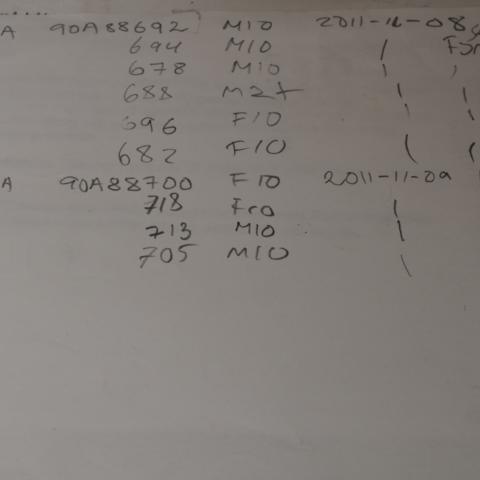 A 90A88692 M10 2011-11-08
694 M10 |
678 M10 |
688 M2+ |
696 F10 |
682 F10 |
A 90A88700 F10 2011-11-09
718 F10 |
713 M10 |
705 M10 |